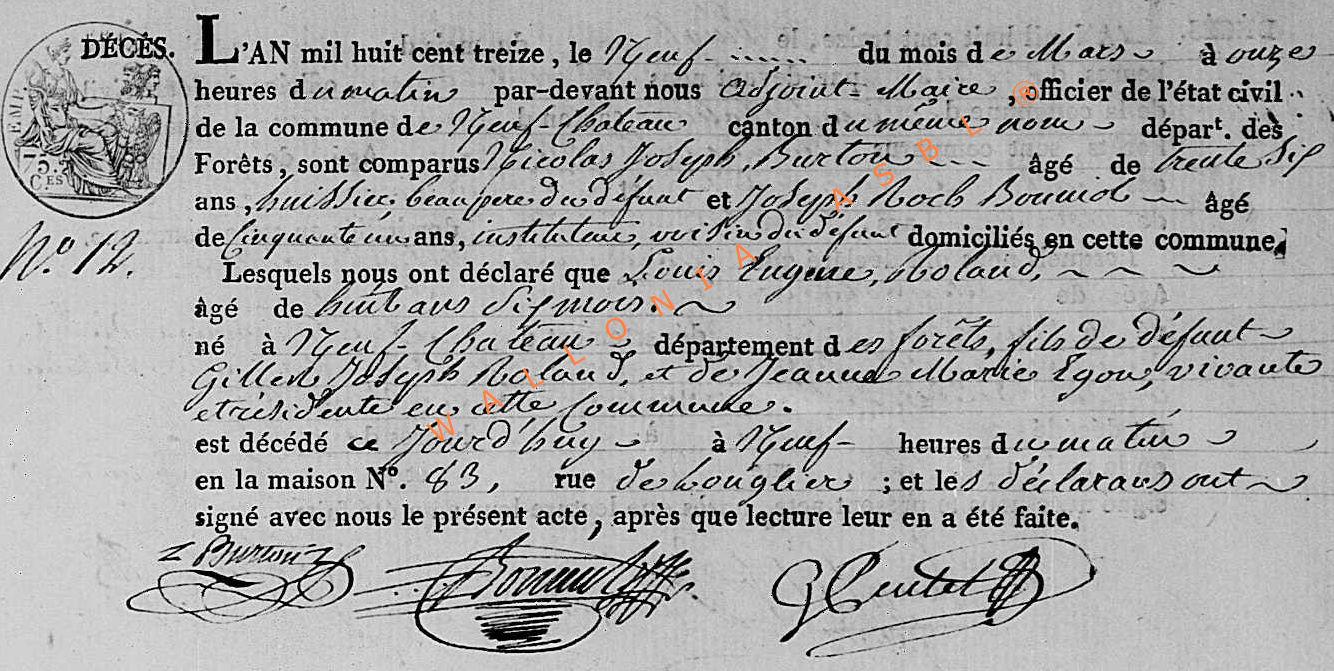 DÉCÈS. L'AN mil huit cent treize, le Neuf ...... du mois de Mars à onze
heures du matin par-devant nous Adjoint-Maire, officier de l'état civil
de la commune de Neuf-Chateau canton du même nom départ. des
Forêts, sont comparus Nicolas Joseph Burton âgé de trente Six
ans, huissier, beau pere du défunt et Joseph Roch Bournol âgé
de Cinquante un ans, instituteur, voisin du défunt domiciliés en cette commune,
No. 12.
Lesquels nous ont déclaré que Louis Eugene, Roland,
âgé de huit ans Six mois.
né à Neuf-Chateau département des forêts, fils de défunt
Gilles Joseph Roland, et de Jeanne Marie Egon, vivante
et résidente en cette Commune.
est décédé ce Jourd'huy à Neuf heures du matin
en la maison No. 83, rue de longlier ; et les déclarans ont
signé avec nous le présent acte, après que lecture leur en a été faite.
Burton
75.
CES
WALLONIA ASBL ®